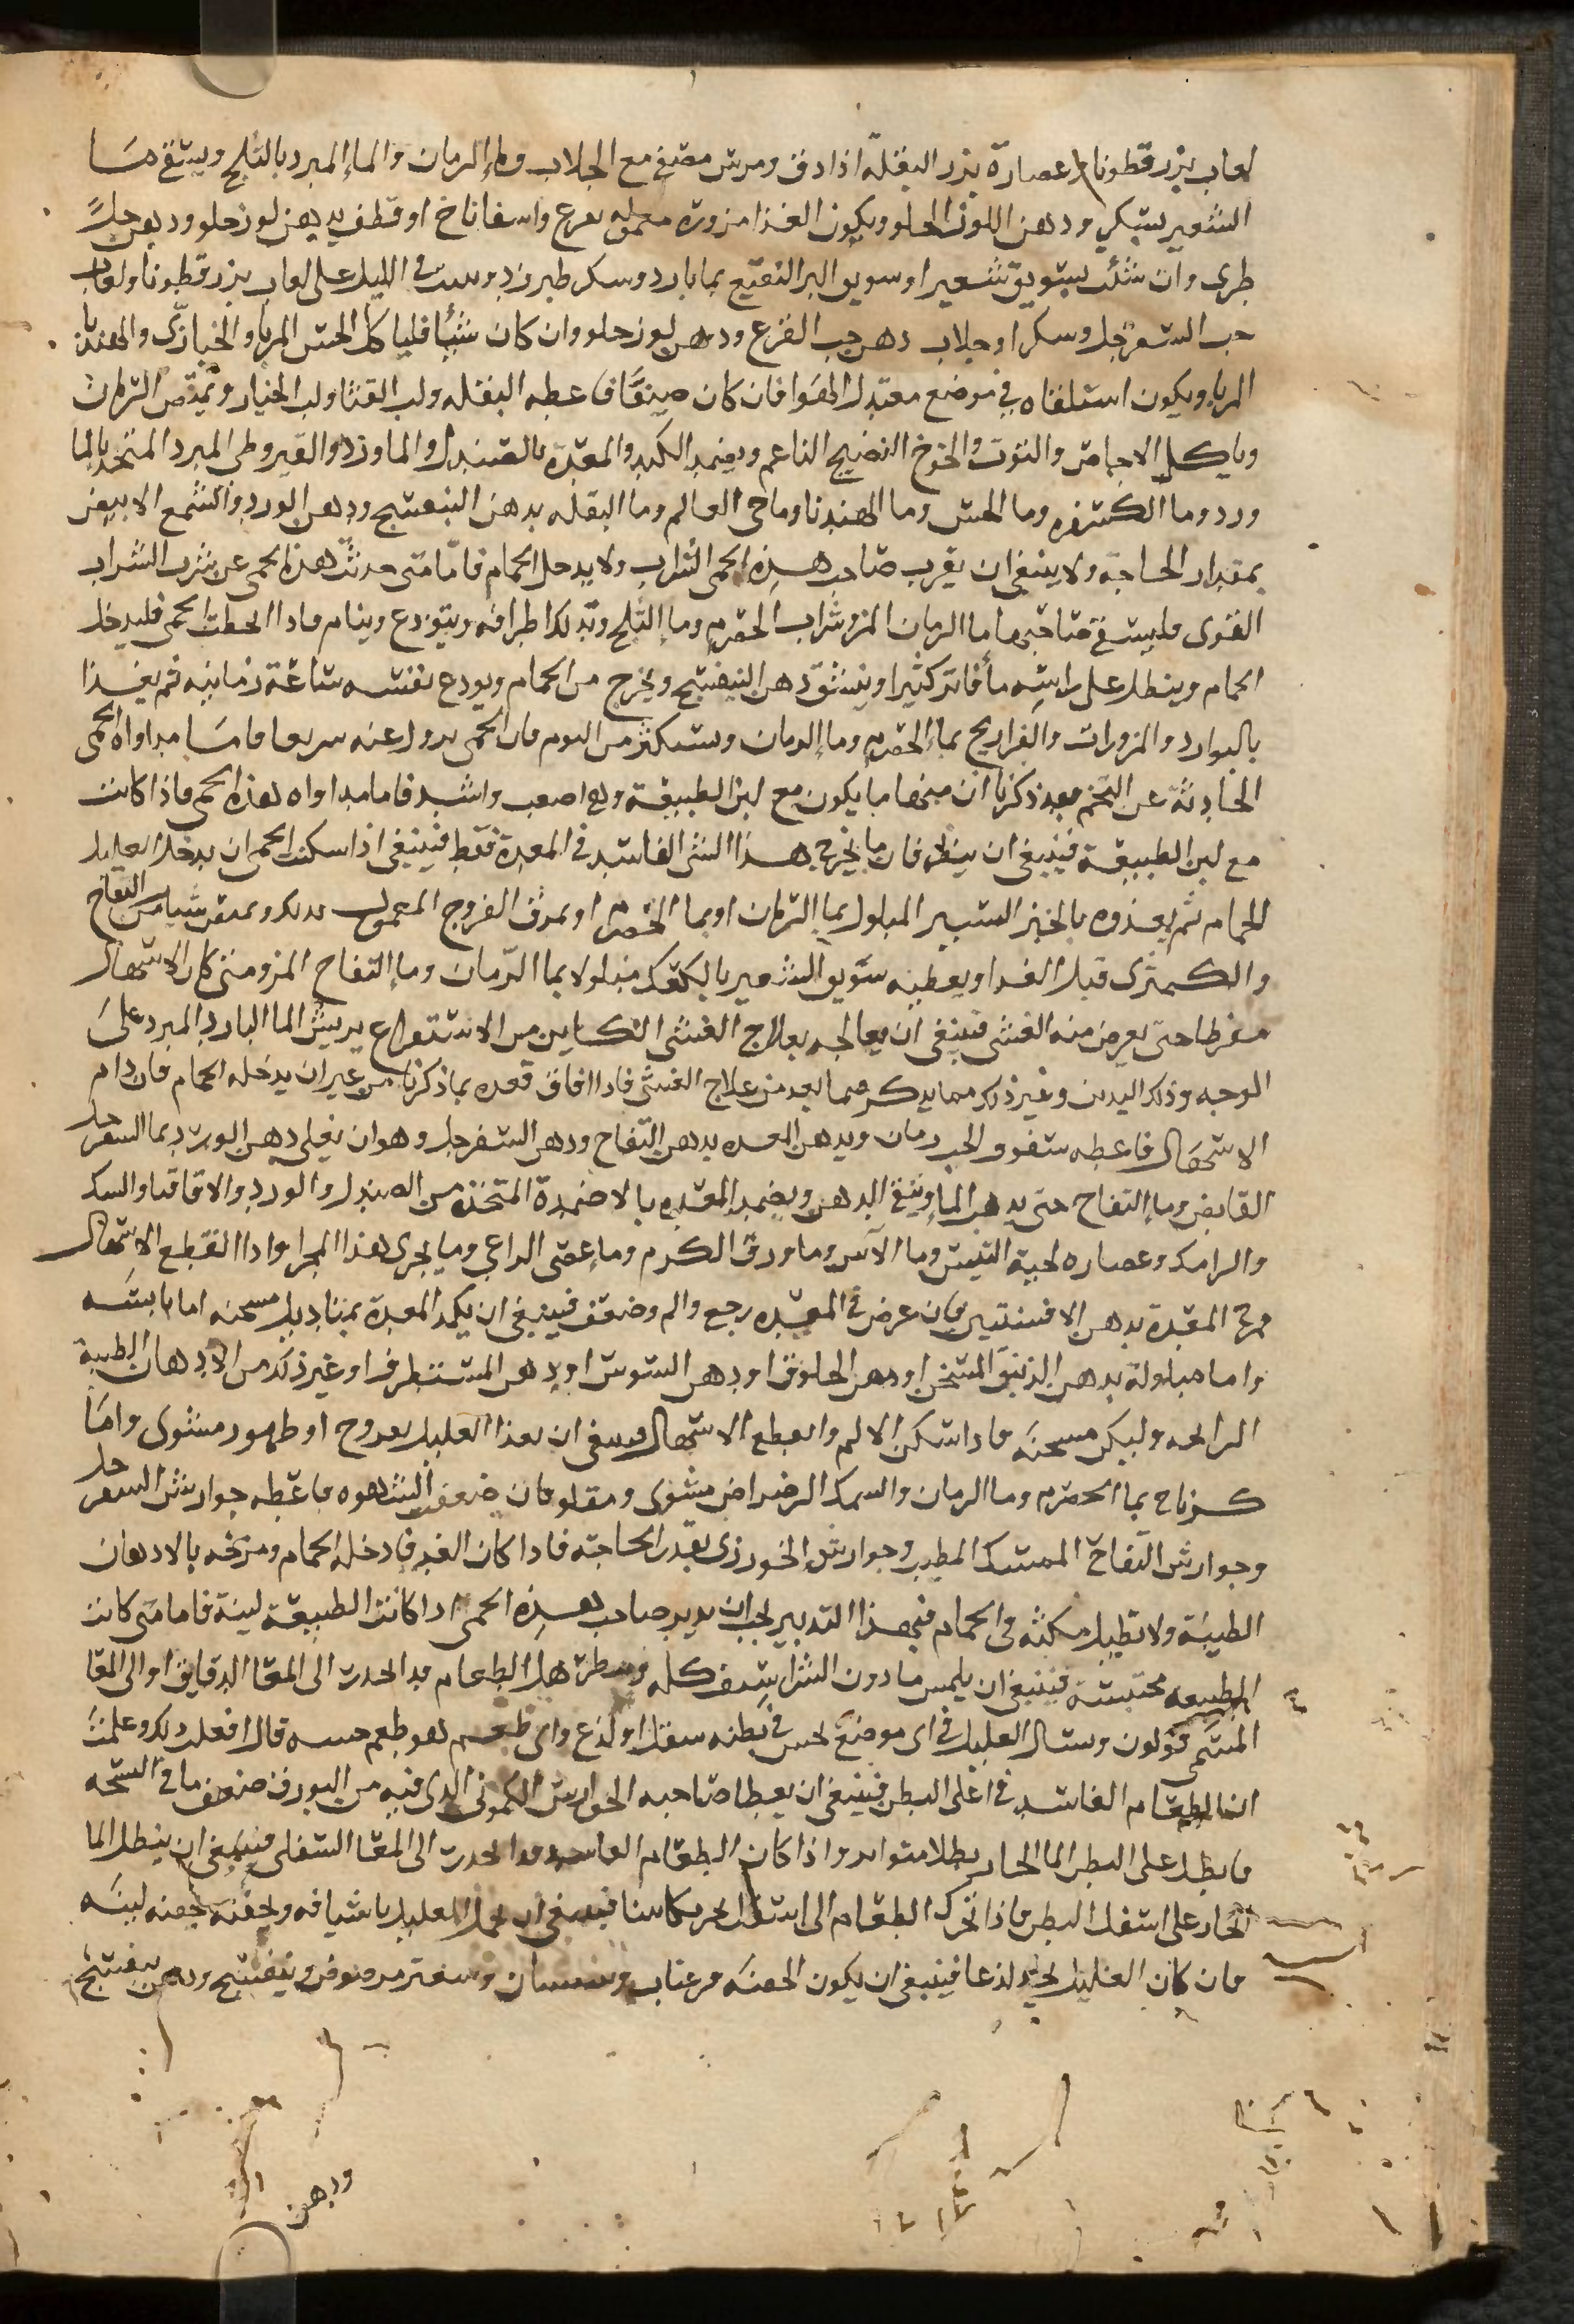 لعاب بزر قطونا او عصارة بزر البقلة اذا دق ومرس مصفى مع الجلاب وما الرمان والما المبرد بالثلج ويستقى من ما
الشعير بسكر ودهن اللوز الحلو ويكون الغذا مزوره معموله بقرع واسفاناخ او قطف بدهن لوز حلو ودهن حل
طرى وان شئت بسويق شعير او سويق البر النقيع بما بارد وسكر طبرزد وبيت في الليل على لعاب بزر قطونا ولعاب
حب السفرجل وسكر او جلاب ودهن حب القرع ودهن لوز حلو وان كان شيئا فلياكل الخس المربا والخبازى والهندبا
المربا ويكون استلقاه في موضع معتدل الهوا فان كان صيفا فاعطه البقله ولب القثا ولب الخيار ويمتص الرمان
وياكل الاجاص والتوت والخوخ النضيج الناعم ويضمد الكبد والمعدة بالصندل والماورد والقيروطى المبرد المتخذ بالما
ورد وما الكسفره وما الخس وما الهندبا وما حي العالم وما البقله بدهن البنفسج ودهن الورد والشمع الابيض
بمقدار الحاجة ولا ينبغى ان يقرب صاحب هذه الحمى الشراب ولا يدخل الحمام فاما متى حدثت هذه الحمى عن شرب الشراب
القوى فليسقى صاحبها ما الرمان المز وشراب الحصرم وما الثلج وتدلك اطرافه ويتودع وينام فاذا انحطت الحمى فليدخل
الحمام وينطل على راسه ما فاتر كثيرا وينشق دهن البنفسج ويخرج من الحمام ويودع نفسه ساعة زمانيه ثم يغذا
بالبوارد والمزورات والفراريج بما الحصرم وما الرمان ويستكثر من النوم فان الحمى تزول عنه سريعا فاما مداواه الحمى
الحادثة عن التخم فقد ذكرنا ان منها ما يكون مع لين الطبيعة وهو اصعب واشد فاما مداواه هذه الحمى فاذا كانت
مع لين الطبيعة فينبغى ان ينظر فان ما يخرج هذا الشى الفاسد في المعدة فقط فينبغى اذا سكنت الحمى ان يدخل العليل
للحمام ثم يغذوه بالخبز اليسير المبلول بما الرمان او بما الحصرم او بمرق الفروج المعمول بذلك ويمتص شيا من التفاح
والكمثرى قبل الغدا ويعطيه سويق الشعير بالكعك مبلولا بما الرمان وما التفاح المز ومتى كان الاسهال
مفرطا حتى يعرض منه الغشى فينبغى ان يعالجه بعلاج الغشى الكاين من الاستفراغ يريش الما البارد المبرد على
الوجه وذلك اليدين وغير ذلك مما يذكر فيما بعد من علاج الغشى فاذا افاق فغده بما ذكرنا من غير ان يدخله الحمام فان دام
الاسهال فاعطه سفوف الحب رمان ويدهن المعده بدهن التفاح ودهن السفرجل وهو ان يغلى دهن الورد بما السفرجل
القابض وما التفاح حتى يذهب الما ويبقى الدهن ويضمد المعده بالاضمدة المتخذه من الصندل والورد والاقاقيا والسك
والرامك وعصاره لحية التيس وما الآس وما ورق الكرم وما عصى الراعي وما يجرى هذا المجرا واذا انقطع الاسهال
مرخ المعدة بدهن الافسنتين فان عرض في المعده وجع والم وضعف فينبغى ان يكمد المعدة بمناديل مسخنه اما يابسه
واما مبلولة بدهن الزنبق المسخن او دهن الخلوق او دهن السوسن او دهن المستظرف او غير ذلك من الادهان الطيبة
الرائحه وليكن مسخنه فاذا سكن الالم وانقطع الاسهال فينبغى ان يغذا العليل بفروج او طيهوج مشوى واما
كزناج بما الحصرم وما الرمان والسمك الرضراضى مشوى ومقلو فان ضعف الشهوه فاعطه جوارشن السفرجل
وجوارشن التفاح الممسك المطيب وجوارشن الخورزى بقدر الحاجة فاذا كان الغد فادخله الحمام ومرخه بالادهان
الطيبة ولا تطيل مكثه في الحمام فبهذا التدبير يجب ان يدبر صاحب هذه الحمى اذا كانت الطبيعة لينة فاما متى كانت
الطبيعه محتبسة فينبغى ان يلمس ما دون الشراسيف كله وينظر هل الطعام قد انحدر الى المعا الدقايق او الى المعا
المسمى قولون وسال العليل في اى موضع يحس في بطنه بثقل او لذع واى طعم هو طعم حسه قال افعل ذلك وعلمت
ان الطعام الفاسد في اعلى البطن فينبغى ان يعطا صاحبه الجوارشن الكمونى الذى فيه من البورق ضعف ما في النسخه
فانطل على البطن الما الحار نطلا متواتر واذا كان الطعام الفاسد قد انحدر الى المعا السفلى فينبغى ان ينطل الما
الحار على اسفل البطن فاذا تحرك الطعام الى اسفل فينبغى ان يحمل العليل باشيافه ويحقنه بحقنه لينه
فان كان العليل يجد لذعا فينبغى ان يكون الحقنه من عناب وسبستان وشعير مرضوض وبنفسج ودهن بنفسج
ودهن